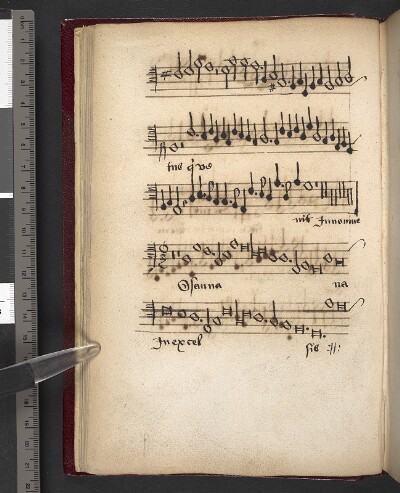 tus q've
nit Innomine
Osanna na
Inexcel sis :||: